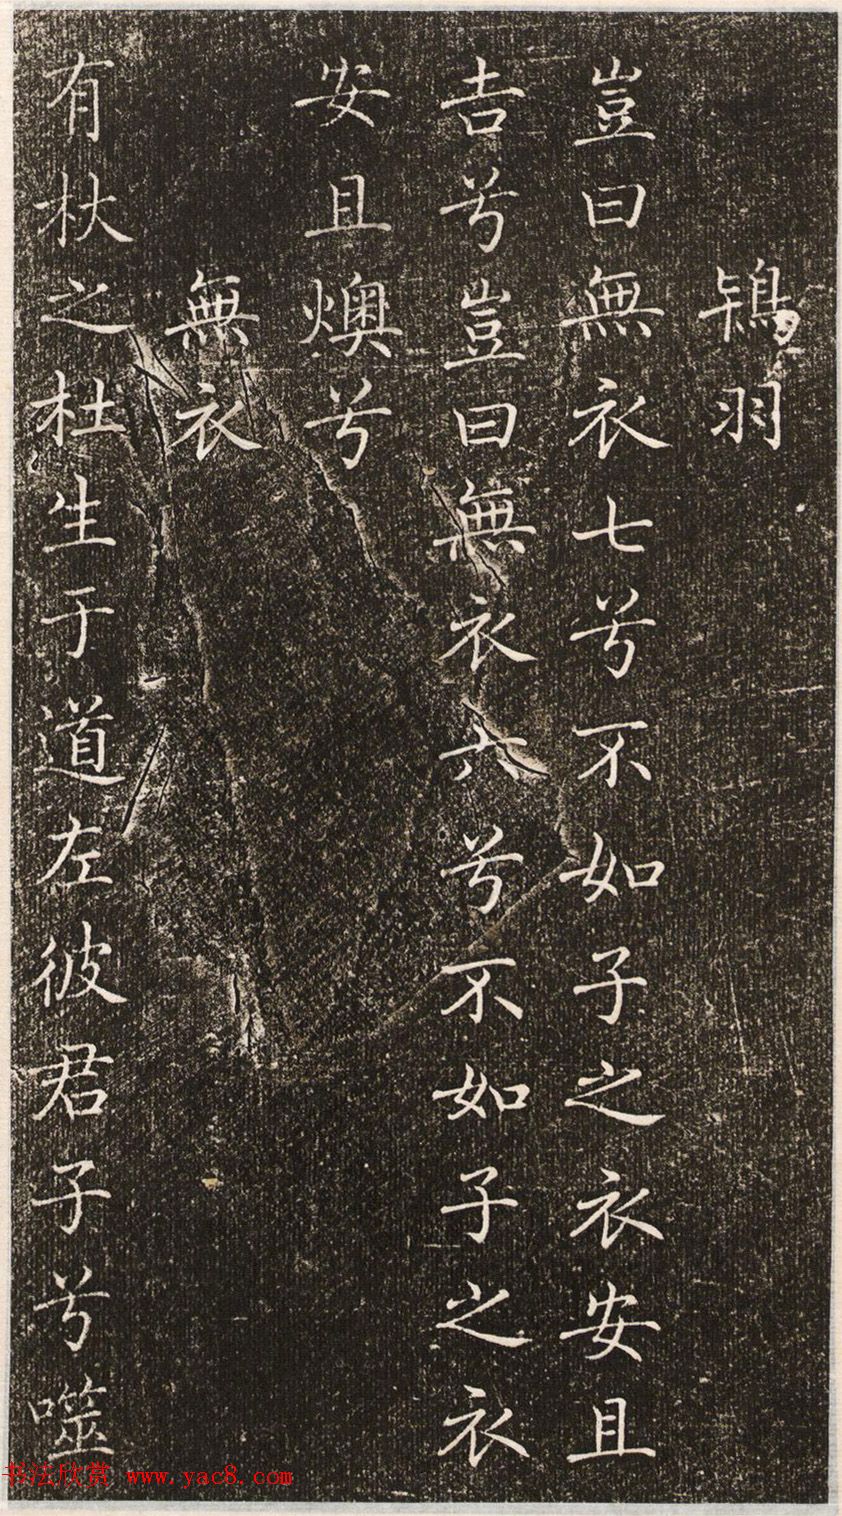 鴇羽
豈曰無衣七兮不如子之衣安且
吉兮豈曰無衣六兮不如子之衣
安且燠兮
無衣
有杕之杜生于道左彼君子兮噬
书法欣赏 www.yac8.com